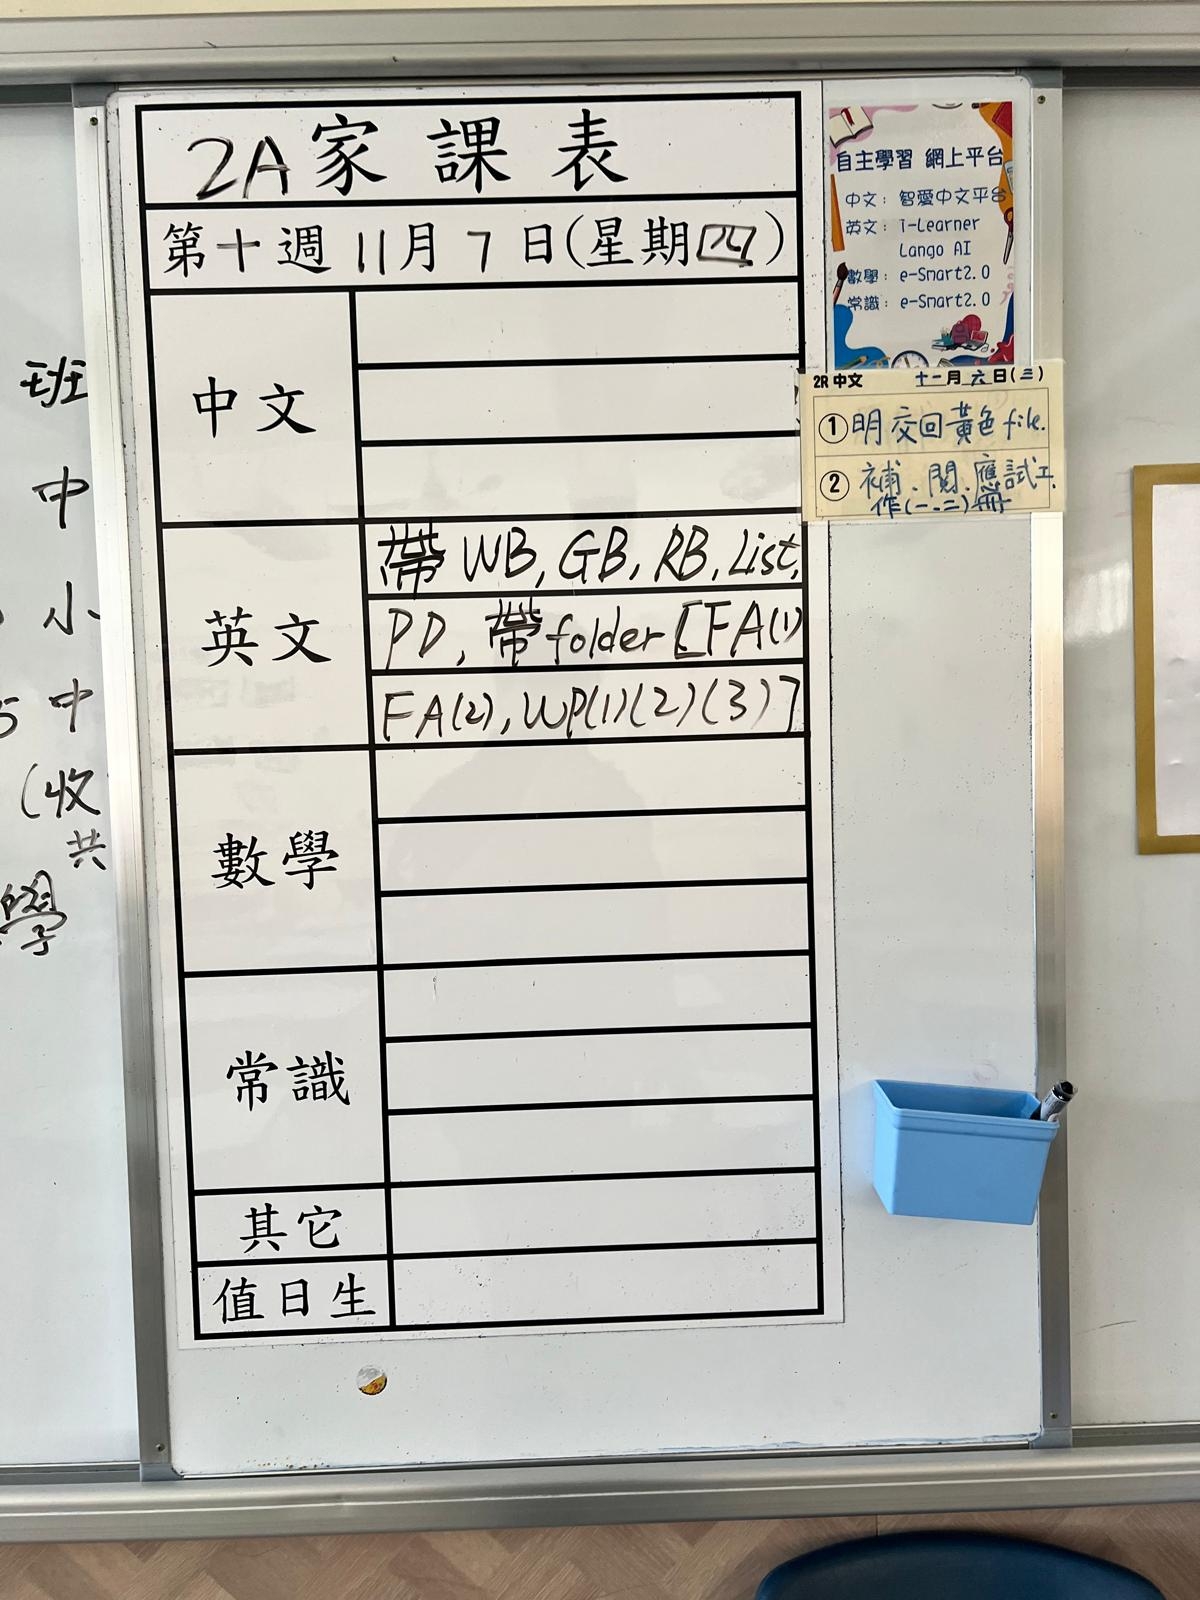 2A家課表
第十週11月7日(星期四)
中文
英文
帶 WB, GB, RB, List,
PD, 帶 folder [FA(1)
FA(2), WP(1)(2)(3)]
數學
常識
其它
值日生
自主學習 網上平台
中文：智愛中文平台
英文：i-Learner
Lango AI
數學：e-Smart2.0
常識：e-Smart2.0
2R 中文 十一月六日(三)
①明交回黃色file.
②補、閱、應試工
作(一、二)冊
班
中
小
5 中
(收
共
學